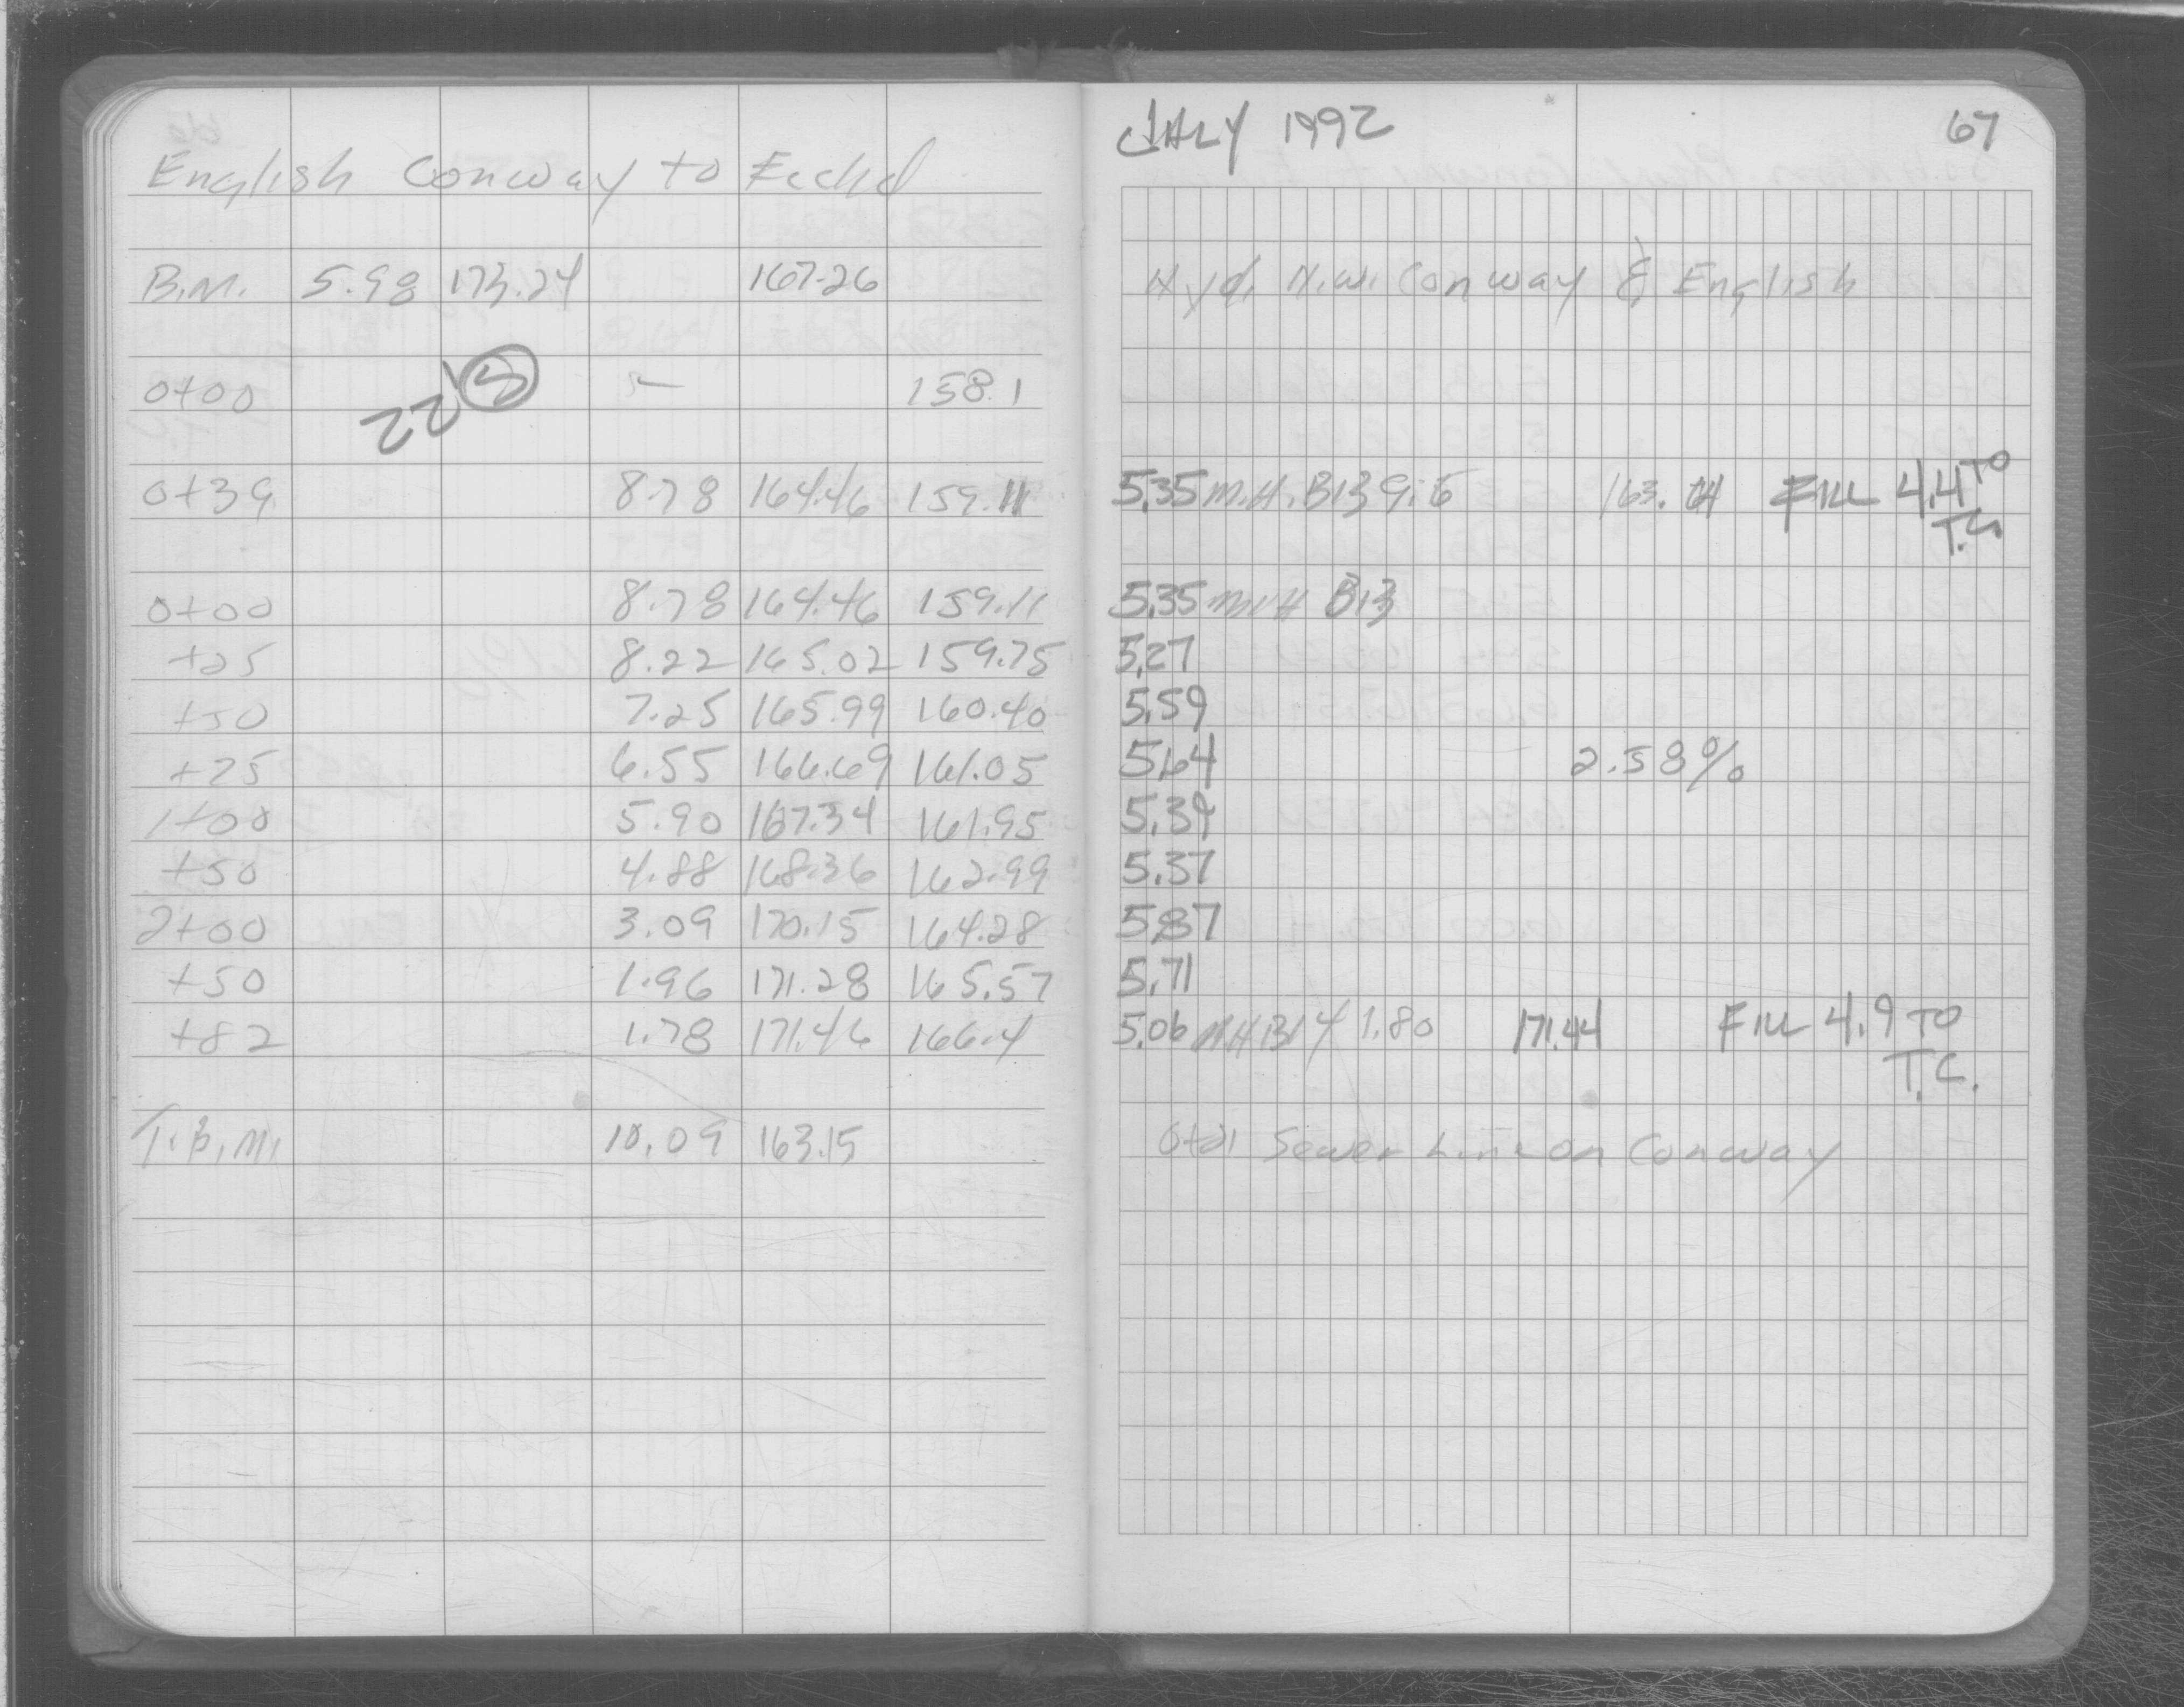 English Conway to Euclid
JULY 1992 67
B.M. 5.98 173.24 167.26 Hyd. N.W. Conway & English
0+00 158.1
22 5
0+39 8.78 164.46 159.11 5.35 M.H. B13 9.6 163.64 FILL 4.4 TO
T.C.
0+00 8.78 164.46 159.11 5.35 M.H B13
+25 8.22 165.02 159.75 5.27
+50 7.25 165.99 160.40 5.59
+75 6.55 166.69 161.05 5.64 2.58%
1+00 5.90 167.34 161.95 5.39
+50 4.88 168.36 162.99 5.37
2+00 3.09 170.15 164.28 5.87
+50 1.96 171.28 165.57 5.71
+82 1.78 171.46 166.4 5.06 MH B14 1.80 171.44 FILL 4.9 TO
T.C.
T.B.M. 10.09 163.15 Sewer Line on Conway